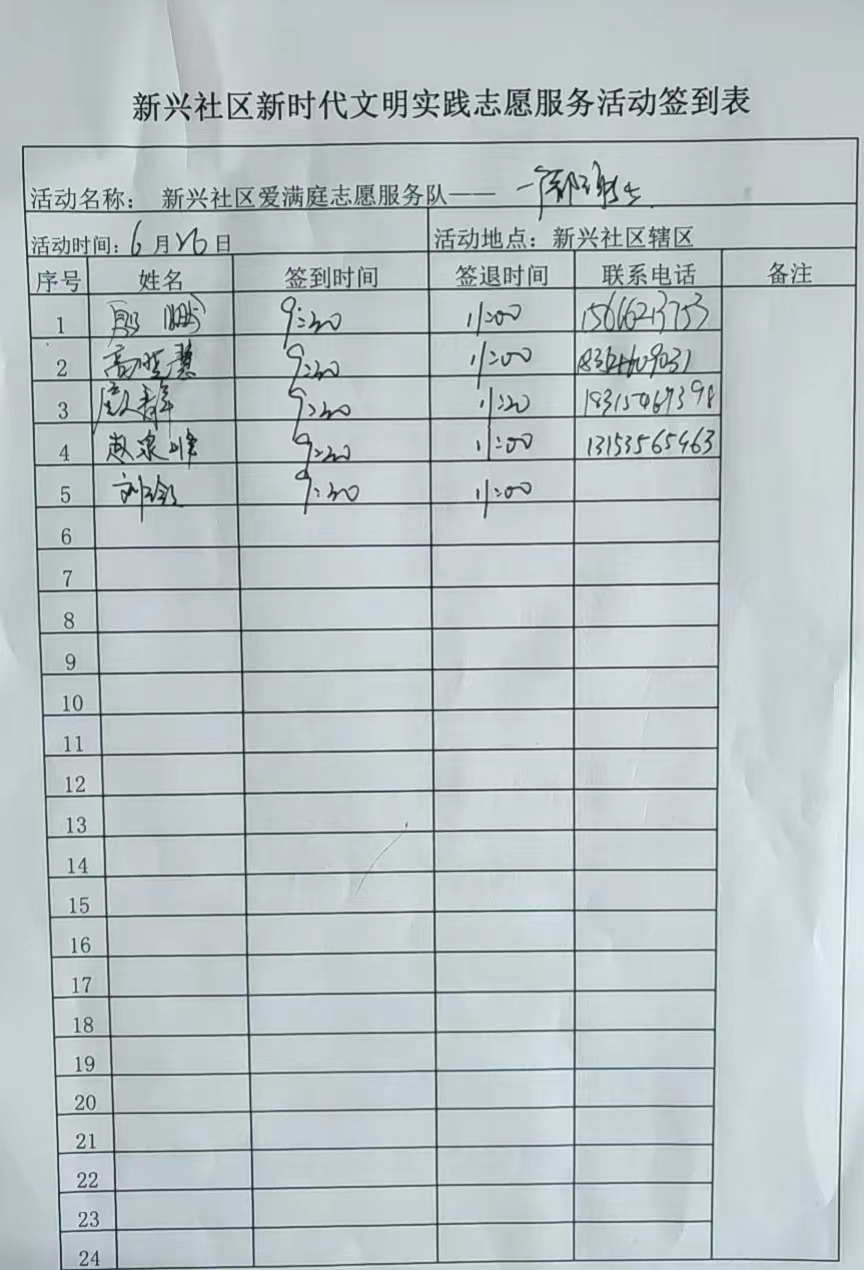 新兴社区新时代文明实践志愿服务活动签到表
活动名称： 新兴社区爱满庭志愿服务队——
活动时间：6月26日 活动地点：新兴社区辖区
序号 姓名 签到时间 签退时间 联系电话 备注
1 9:30 11:00 15666213753
2 高 慧 9:30 11:00
3 9:30 11:30 18315467398
4 赵泉峰 9:30 11:00 13153565463
5 刘 9:30 11:00
6
7
8
9
10
11
12
13
14
15
16
17
18
19
20
21
22
23
24